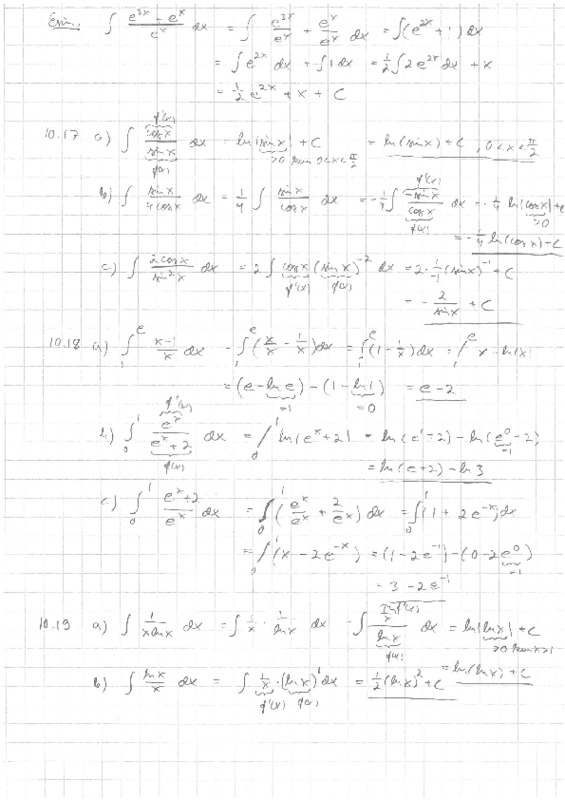 Esim. ∫ (e^{3x} - e^x)/e^x dx = ∫ e^{3x}/e^x + e^x/e^x dx = ∫(e^{2x} + 1) dx
= ∫e^{2x} dx + ∫1 dx = 1/2 ∫2e^{2x} dx + x
= 1/2 e^{2x} + x + C
10.17 a) ∫ cos x / sin x dx = ln|sin x| + C = ln(sin x) + C, 0 < x < π/2
φ'(x) φ(x) >0 kun 0<x<π/2
b) ∫ sin x / 4cos x dx = 1/4 ∫ sin x / cos x dx = -1/4 ∫ -sin x / cos x dx = -1/4 ln|cos x| + C
φ'(x) φ(x) >0
= -1/4 ln(cos x) + C
c) ∫ 2cos x / sin²x dx = 2 ∫ cos x (sin x)^{-2} dx = 2·1/-1 (sin x)^{-1} + C
φ'(x) φ(x)
= - 2/sin x + C
10.18 a) ∫_1^e (x-1)/x dx = ∫_1^e (x/x - 1/x) dx = ∫_1^e (1 - 1/x) dx = /_1^e x - ln|x|
= (e - ln e) - (1 - ln 1) = e - 2
=1 =0
b) ∫_0^1 e^x/(e^x + 2) dx = /_0^1 ln|e^x + 2| = ln(e^1 + 2) - ln(e^0 + 2)
φ'(x) φ(x) =1
= ln(e + 2) - ln 3
c) ∫_0^1 (e^x + 2)/e^x dx = ∫_0^1 (e^x/e^x + 2/e^x) dx = ∫_0^1 (1 + 2e^{-x}) dx
= /_0^1 (x - 2e^{-x}) = (1 - 2e^{-1}) - (0 - 2e^0)
=1
= 3 - 2e^{-1}
10.19 a) ∫ 1/(x ln x) dx = ∫ 1/x · 1/ln x dx = ∫ (1/x)/ln x dx = ln|ln x| + C
φ'(x) φ(x) >0 kun x>1
= ln(ln x) + C
b) ∫ ln x / x dx = ∫ 1/x · (ln x)^1 dx = 1/2 (ln x)² + C
φ'(x) φ(x)